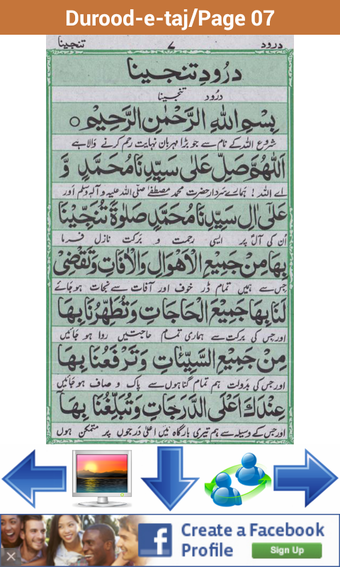 Durood-e-taj/Page 07
درود ۷ تنجینا
درودِ تنجینا
درُود تنجینا
بِسْمِ اللهِ الرَّحْمٰنِ الرَّحِیْمِ ○
شروع اللہ کے نام سے جو بڑا مہربان نہایت رحم کرنے والا ہے
اَللّٰهُمَّ صَلِّ عَلٰى سَيِّدِنَا مُحَمَّدٍ وَّ
اے اللہ! ہمارے سردار حضرت محمد مصطفےٰ صلی اللہ علیہ وآلہ وسلم اور
عَلٰى اٰلِ سَيِّدِنَا مُحَمَّدٍ صَلٰوةً تُنَجِّيْنَا
ان کی آل پر ایسی رحمت و برکت نازل فرما
بِهَا مِنْ جَمِيْعِ الْاَهْوَالِ وَالْاٰفَاتِ وَتَقْضِىْ
جس سے ہمیں تمام ڈر خوف اور آفات سے نجات ہو جائے
لَنَا بِهَا جَمِيْعَ الْحَاجَاتِ وَتُطَهِّرُنَا بِهَا
اور جس کی برکت سے ہماری تمام حاجتیں روا ہوں
مِنْ جَمِيْعِ السَّيِّاٰتِ وَتَرْفَعُنَا بِهَا
اور جس کی بدولت ہم تمام گناہوں سے پاک و صاف ہو جائیں
عِنْدَكَ اَعْلَى الدَّرَجَاتِ وَتُبَلِّغُنَا بِهَا
اور جس کے وسیلہ سے ہم تیری بارگاہ میں اعلیٰ درجوں پر متمکن ہوں
Create a Facebook
Profile
Sign Up